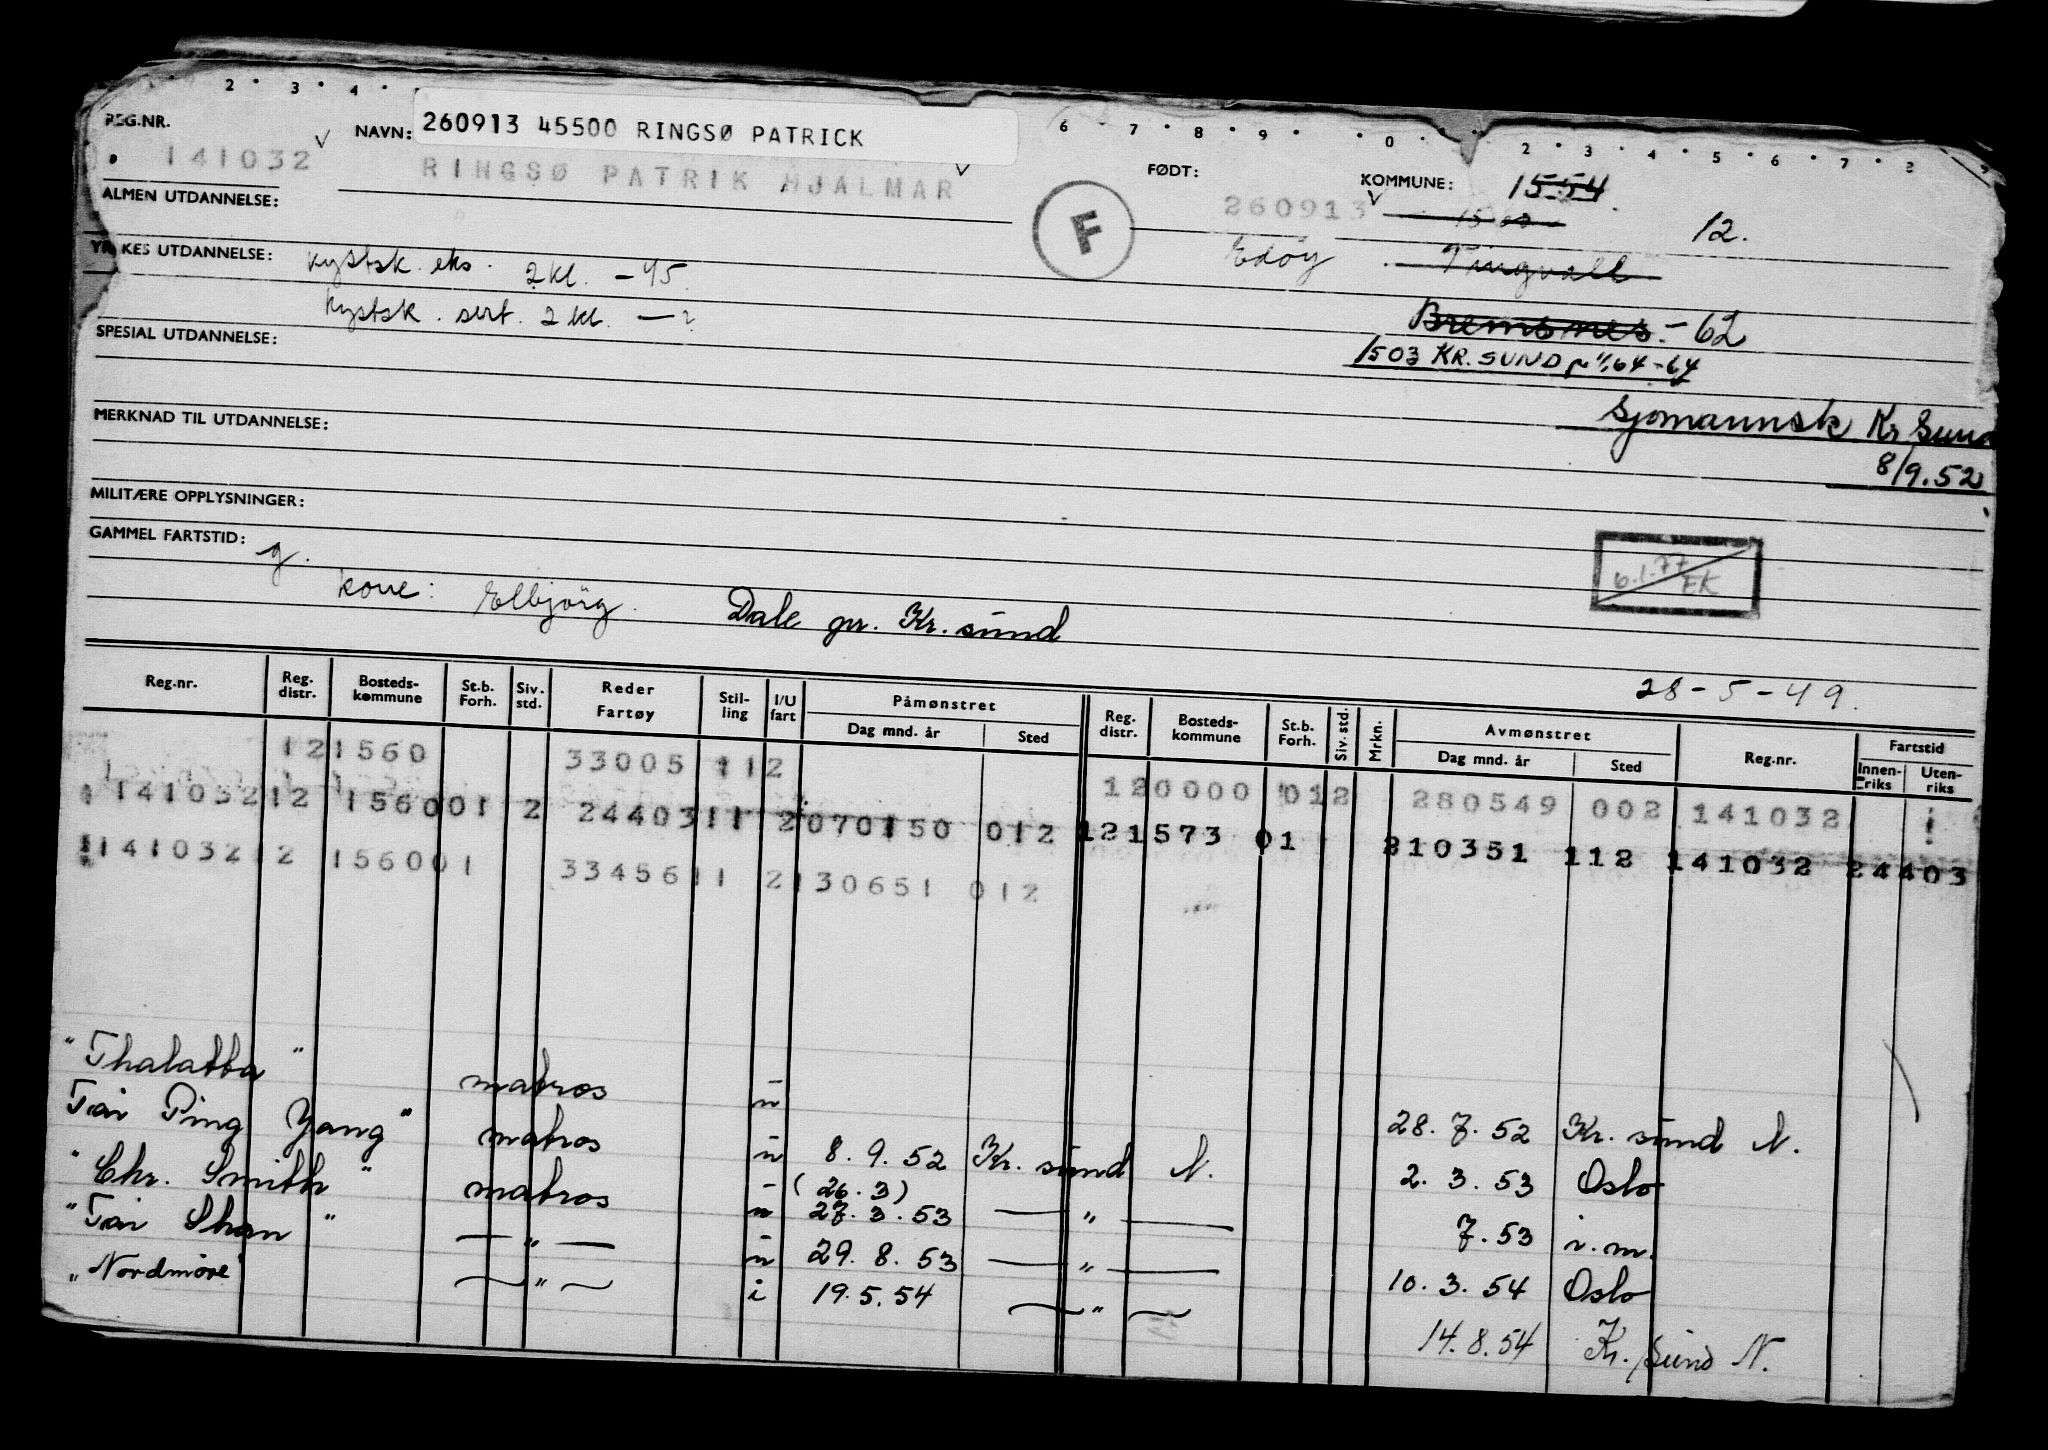 2 3 4 6 7 8 9 0 2 3 4 5 6 7 8
REG.NR. NAVN: 260913 45500 RINGSØ PATRICK
141032 RINGSØ PATRIK HJALMAR FØDT: 260913 KOMMUNE: 1554
12.
ALMEN UTDANNELSE: F Edöy Tingvoll
YRKES UTDANNELSE: kystsk. eks. 2 kl. - 45.
kystsk. sert. 2 kl. — ?
Bremsnes - 62
SPESIAL UTDANNELSE: 1503 KR. SUND pr 1/1 64 - 64
MERKNAD TIL UTDANNELSE: Sjømannsk Kr Sund
8/9.52
MILITÆRE OPPLYSNINGER:
GAMMEL FARTSTID: g. 6.1.77 EK
kone: Elbjörg. Dale pr. Kr. sund
28-5-49.
Reg.nr. Reg. distr. Bosteds-kommune St.b. Forh. Siv. std. Reder Fartøy Stil-ling I/U fart Påmønstret Dag mnd. år Sted Reg. distr. Bosteds-kommune St.b. Forh. Siv. std. Mrkn. Avmønstret Dag mnd. år Sted Reg.nr. Fartstid Innen-riks Uten-riks
121560 33005 112 120000 012 280549 002 141032
141032 12 156001 2 2440311 2 070150 012 121573 01 210351 112 141032 24403
141032 12 156001 3345611 2 130651 012
"Thalatta" matros u 28.7.52 Kr. sund N.
Tai Ping Yang" matros u 8.9.52 Kr. sund N. 2.3.53 Oslo
"Chr. Smith" matros u (26.3) 27.3.53 — " — 7.53 i.m.
"Tai Shan" — " — u 29.8.53 — " — 10.3.54 Oslo
"Nordmöre" — " — i 19.5.54 — " — 14.8.54 Kr. sund N.